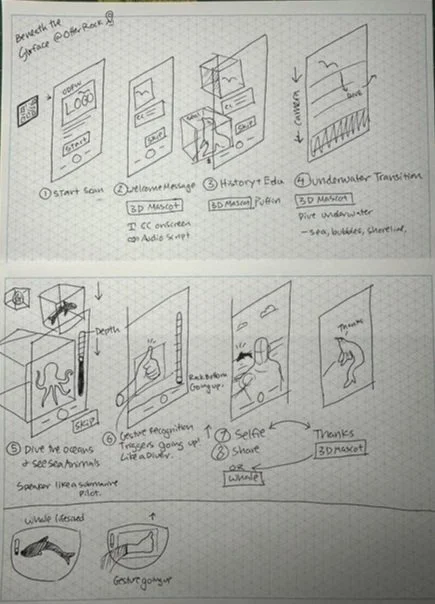 Beneath the
Surface @ Otter Rock
ODFW
LOGO
START
① Start Scan
CC
SKIP
② Welcome Message
3D Mascot
CC onscreen
Audio Script
CC
SKIP
③ History + Edu
3D Mascot Puffin
← Camera →
DIVE
④ Underwater Transition
3D Mascot
Dive underwater
- sea, bubbles, shoreline,
Depth
SKIP
⑤ Dive the oceans
+ see sea Animals
Speaker like a submarine
pilot.
Rock Bottom
Going up.
⑥ Gesture Recognition
Triggers going up!
Like a Diver.
⑦ Selfie
⑧ Share
OR
Whale
Thanks
Thanks
3D Mascot
Whale lifesized
Gesture going up